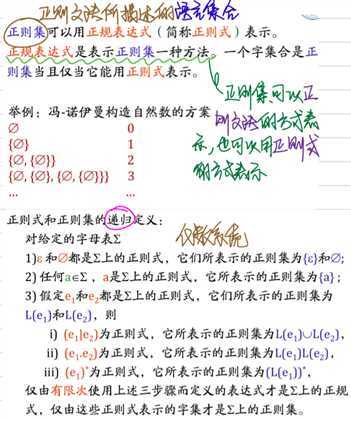 正则文法所描述的语言集合
正则集可以用正规表达式(简称正则式)表示。
正规表达式是表示正则集一种方法。一个字集合是正
则集当且仅当它能用正则式表示。
正则集可以正
则文法的方式表
示,也可以用正则式
的方式表示
举例:冯-诺伊曼构造自然数的方案
∅ 0
{∅} 1
{∅, {∅}} 2
{∅, {∅}, {∅, {∅}}} 3
… …
正则式和正则集的递归定义:
对给定的字母表Σ
1)ε和∅都是Σ上的正则式,它们所表示的正则集为{ε}和∅;
2) 任何a∈Σ,a是Σ上的正则式,它所表示的正则集为{a};
3) 假定e₁和e₂都是Σ上的正则式,它们所表示的正则集为
L(e₁)和L(e₂),则
i) (e₁|e₂)为正则式,它所表示的正则集为L(e₁)∪L(e₂),
ii) (e₁.e₂)为正则式,它所表示的正则集为L(e₁)L(e₂),
iii) (e₁)*为正则式,它所表示的正则集为(L(e₁))*,
仅由有限次使用上述三步骤而定义的表达式才是Σ上的正规
式,仅由这些正则式表示的字集才是Σ上的正则集。